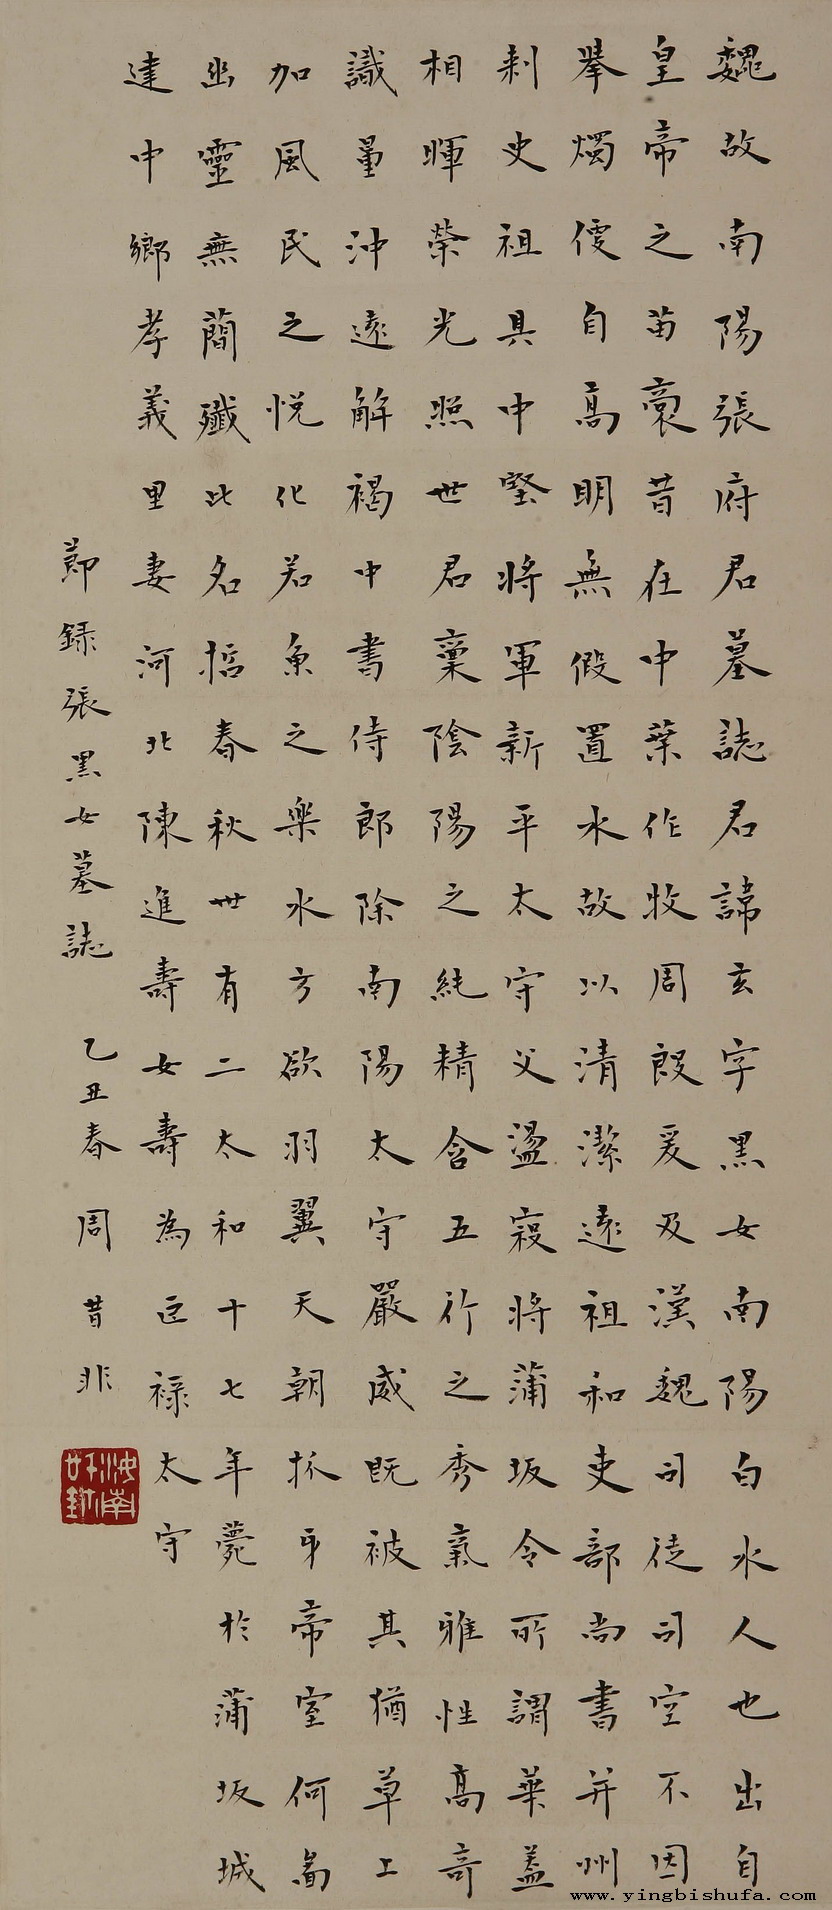 魏故南陽張府君墓誌君諱玄字黑女南陽白水人也出自
皇帝之苗裔昔在中葉作牧周殷爰及漢魏司徒司空不因
舉燭便自高明無假置水故以清潔遠祖和吏部尚書并州
刺史祖具中堅將軍新平太守父盪寇將蒲坂令所謂華蓋
相暉榮光照世君稟陰陽之純精含五行之秀氣雅性高奇
識量沖遠解褐中書侍郎除南陽太守嚴威既被其猶草上
加風民之悅化若魚之樂水方欲羽翼天朝抓牙帝室何啚
幽靈無簡殲此名哲春秋世有二太和十七年薨於蒲坂城
建中鄉孝義里妻河北陳進壽女壽為巨祿太守
節錄張黑女墓誌 乙丑春 周昔非
www.yingbishufa.com